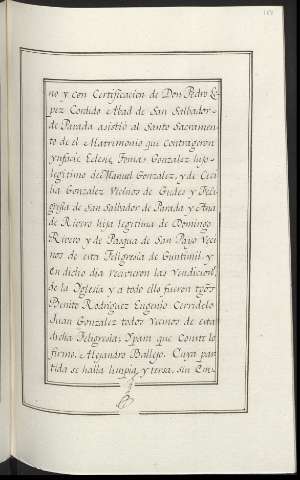 no y con Certificacion de Don Pedro Lo
pez Cordido Abad de San Salbador
de Parada asistió al Santo Sacramen
to de el Matrimonio que Contrageron
Ynfacie Eclesie Tomas Gonzalez hijo
legitimo de Manuel Gonzalez, y de Ceci
lia Gonzalez Vecinos de Gudes y Feli
gresia de San Salbador de Parada y Ana
de Rivero hija legitima de Domingo
Rivero y de Pasqua de San Payo Veci
nos de esta Feligresia de Guntimil y
en dicho dia recivieron las Vendicion.
de la Yglesia y a todo ello fueron tgos
Benito Rodriguez Eugenio Cerridelo
Juan Gonzalez todos Vecinos de esta
dicha Feligresia; Ypara que Conste lo
firmo. Alejandro Ballejo. Cuya par
tida se halla limpia, y tersa, sin En-